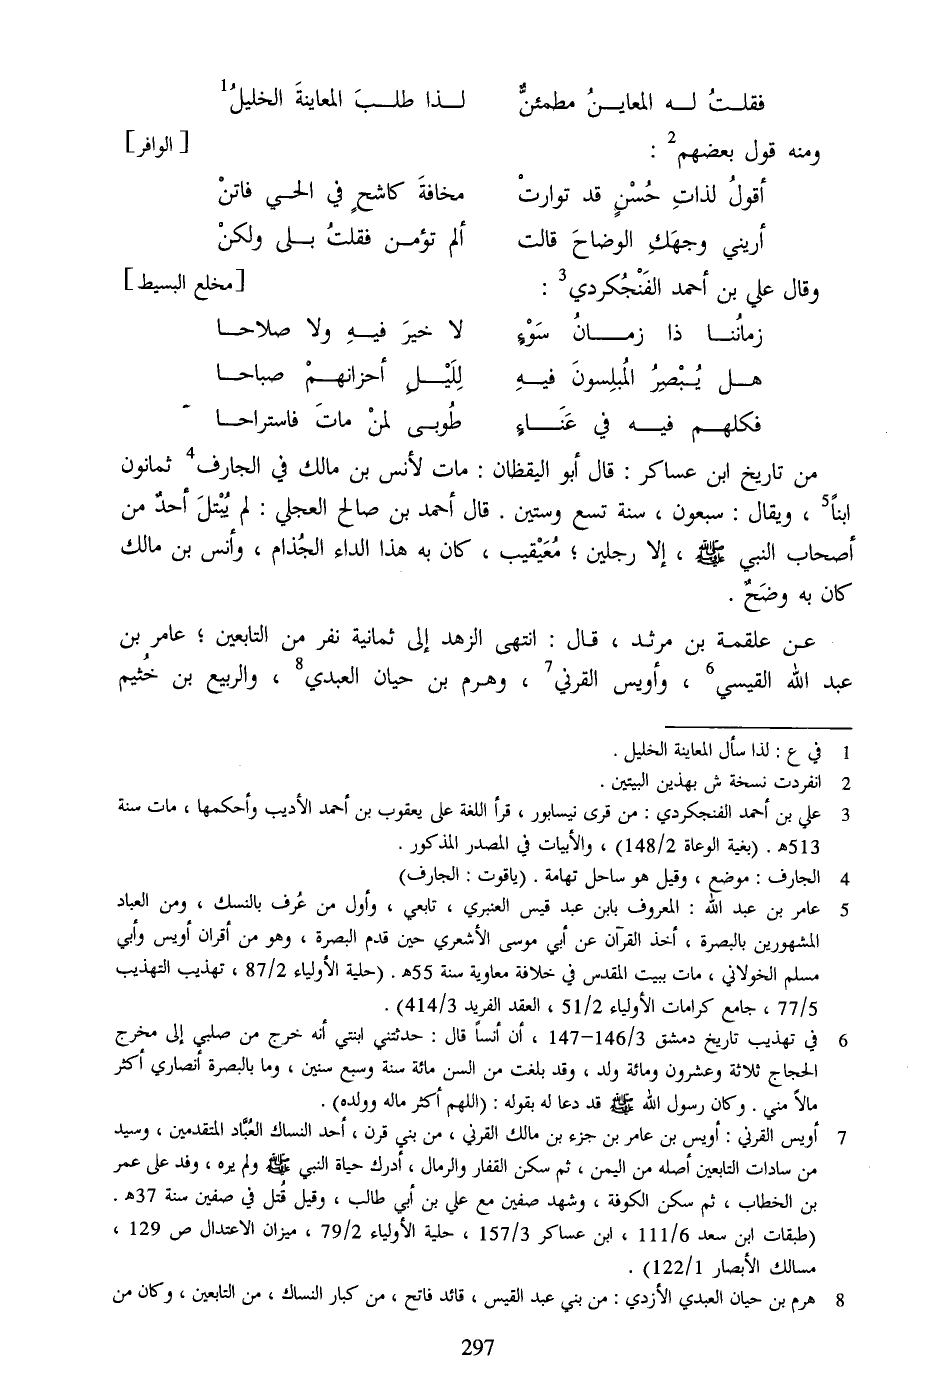 فقلتُ له المعاينُ مطمئنٌّ لذا طلبَ المعاينةَ الخليلُ1
ومنه قول بعضهم2 : [ الوافر]
أقولُ لذاتِ حُسْنٍ قد توارتْ مخافةَ كاشحٍ في الحي فاتنْ
أريني وجهَكِ الوضاحَ قالت ألم تؤمن فقلتُ بلى ولكنْ
وقال علي بن أحمد الفَنْجُكردي3 : [مخلع البسيط]
زمانُنا ذا زمانُ سَوْءٍ لا خيرَ فيهِ ولا صلاحا
هل يُبْصِرُ المُبلِسونَ فيهِ لِلَيْلِ أحزانهمْ صباحا
فكلهم فيه في عَنَاءٍ طُوبى لمنْ ماتَ فاستراحا
من تاريخ ابن عساكر : قال أبو اليقظان : مات لأنس بن مالك في الجارف4 ثمانون
ابناً5 ، ويقال : سبعون ، سنة تسع وستين . قال أحمد بن صالح العجلي : لم يُبْتلَ أحدٌ من
أصحاب النبي ﷺ ، إلا رجلين ؛ مُعَيْقيب ، كان به هذا الداء الجُذام ، وأنس بن مالك
كان به وضَحٌ .
عن علقمة بن مرثد ، قال : انتهى الزهد إلى ثمانية نفر من التابعين ؛ عامر بن
عبد الله القيسي6 ، وأويس القرني7 ، وهرم بن حيان العبدي8 ، والربيع بن خُثيم
1 في ع : لذا سأل المعاينة الخليل .
2 انفردت نسخة ش بهذين البيتين .
3 علي بن أحمد الفنجكردي : من قرى نيسابور ، قرأ اللغة على يعقوب بن أحمد الأديب وأحكمها ، مات سنة
513هـ . (بغية الوعاة 148/2) ، والأبيات في المصدر المذكور .
4 الجارف : موضع ، وقيل هو ساحل تهامة . (ياقوت : الجارف)
5 عامر بن عبد الله : المعروف بابن عبد قيس العنبري ، تابعي ، وأول من عُرف بالنسك ، ومن العباد
المشهورين بالبصرة ، أخذ القرآن عن أبي موسى الأشعري حين قدم البصرة ، وهو من أقران أويس وأبي
مسلم الخولاني ، مات ببيت المقدس في خلافة معاوية سنة 55هـ . (حلية الأولياء 87/2 ، تهذيب التهذيب
77/5 ، جامع كرامات الأولياء 51/2 ، العقد الفريد 414/3) .
6 في تهذيب تاريخ دمشق 146/3–147 ، أن أنساً قال : حدثتني ابنتي أنه خرج من صلبي إلى مخرج
الحجاج ثلاثة وعشرون ومائة ولد ، وقد بلغت من السن مائة سنة وسبع سنين ، وما بالبصرة أنصاري أكثر
مالاً مني . وكان رسول الله ﷺ قد دعا له بقوله : (اللهم أكثر ماله وولده) .
7 أويس القرني : أويس بن عامر بن جزء بن مالك القرني ، من بني قرن ، أحد النساك العُبَّاد المتقدمين ، وسيد
من سادات التابعين أصله من اليمن ، ثم سكن القفار والرمال ، أدرك حياة النبي ﷺ ولم يره ، وفد على عمر
بن الخطاب ، ثم سكن الكوفة ، وشهد صفين مع علي بن أبي طالب ، وقيل قُتل في صفين سنة 37هـ .
(طبقات ابن سعد 111/6 ، ابن عساكر 157/3 ، حلية الأولياء 79/2 ، ميزان الاعتدال ص 129 ،
مسالك الأبصار 122/1) .
8 هرم بن حيان العبدي الأزدي : من بني عبد القيس ، قائد فاتح ، من كبار النساك ، من التابعين ، وكان من
297